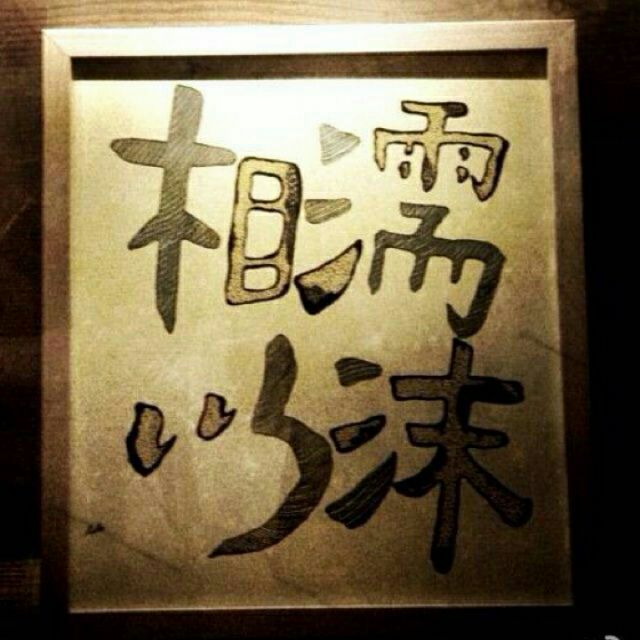 相濡
以沫